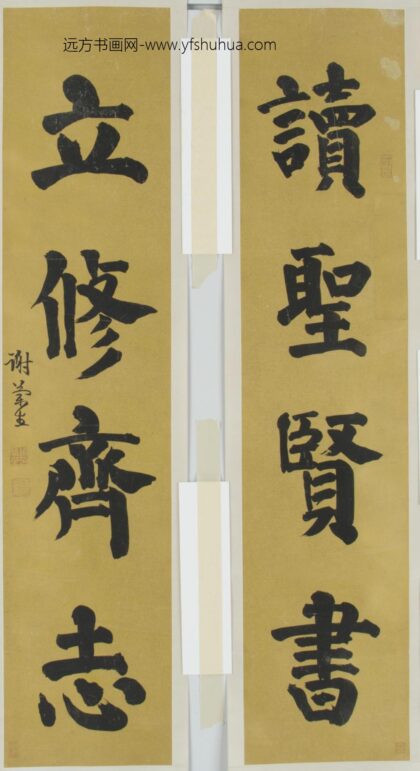 远方书画网-www.yfshuhua.com
讀聖賢書
立修齊志
谢蘭生